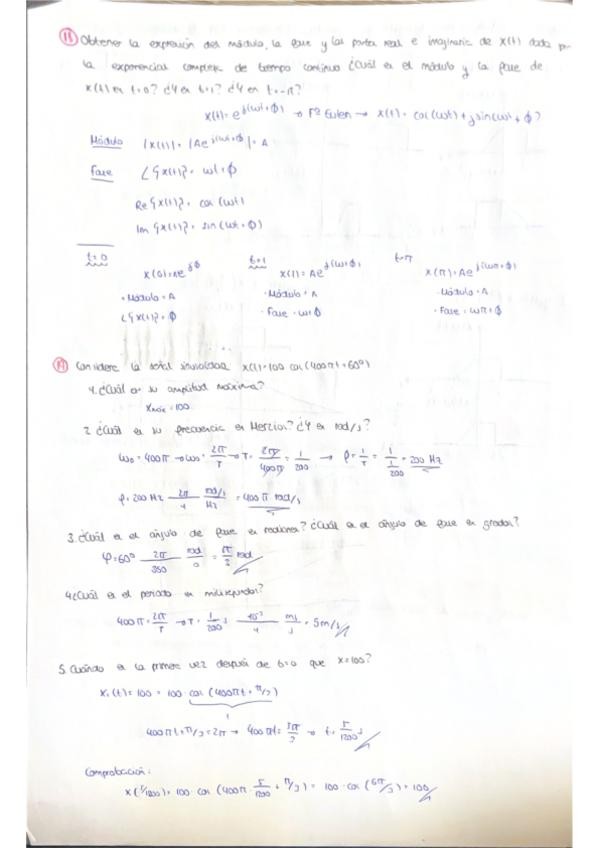 18 Obtener la expresión del módulo, la fase y las partes real e imaginaria de x(t) dada por
la exponencial compleja de tiempo continuo ¿Cuál es el módulo y la fase de
x(t) en t=0? ¿Y en t=1? ¿Y en t=-π?
x(t)= e^j(ωt+ϕ) → Fª Euler → x(t)= cos(ωt)+jsin(ωt+ϕ)?
Módulo |x(t)|= |Ae^j(ωt+ϕ)| = A
Fase ∠{x(t)}= ωt+ϕ
Re{x(t)}= cos(ωt)
Im{x(t)}= sin(ωt+ϕ)
t=0 t=1 t=π
x(0)=Ae^jϕ x(1)=Ae^j(ω+ϕ) x(π)=Ae^j(ωπ+ϕ)
· Módulo = A · Módulo = A · Módulo = A
∠{x(t)}= ϕ · Fase = ω+ϕ · Fase = ωπ+ϕ
19 Considere la señal sinusoidal x(t)=100 cos(400πt+60º)
1. ¿Cuál es su amplitud máxima?
xmáx=100
2. ¿Cuál es su frecuencia en Hercios? ¿Y en rad/s?
ω₀=400π → ω₀= 2π/T → T= 2π/400π = 1/200 → f= 1/T = 1/(1/200) = 200 Hz
f=200 Hz 2π/1 rad/s/Hz = 400π rad/s
3. ¿Cuál es el ángulo de fase en radianes? ¿Cuál es el ángulo de fase en grados?
φ=60º 2π/360 rad/º = π/3 rad
4. ¿Cuál es el periodo en milisegundos?
400π= 2π/T → T= 1/200 s 10³/1 ms/s = 5m/s
5. Cuándo es la primera vez después de t=0 que x=100?
x(t)=100 = 100 cos(400πt+π/3)
1
400πt+π/3=2π → 400πt= 5π/3 → t= 5/1200 s
Comprobación:
x(5/1200)=100 cos(400π · 5/1200 + π/3) = 100 · cos(6π/3) = 100